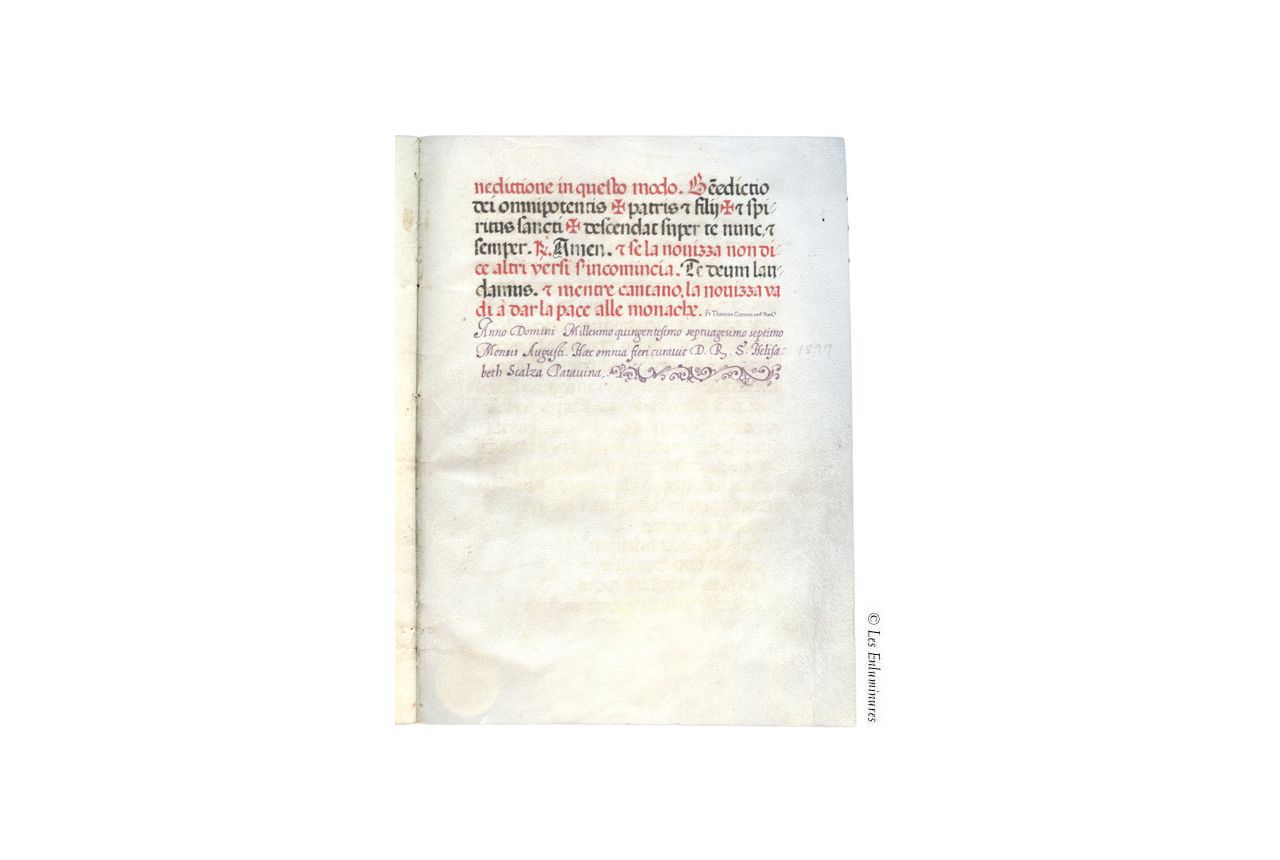 nedittione in questo modo. Bẽedictio
dei omnipotentis ✠ patris ⁊ filij ✠ ⁊ spi-
ritus sancti ✠ descendat super te nunc, ⁊
semper. ℟. Amen. ⁊ se la nouizza non di-
ce altri versi s'incomincia. Te deum lau-
damus. ⁊ mentre cantano, la nouizza va
di à dar la pace alle monache. Fr Thomas
Anno Domini Millesimo quingentesimo septuagesimo septimo
Mensis Augusti. Hæc omnia fieri curauit D. R. S. Helisa-
beth Scalza Patauina.
1577
© Les Enluminures